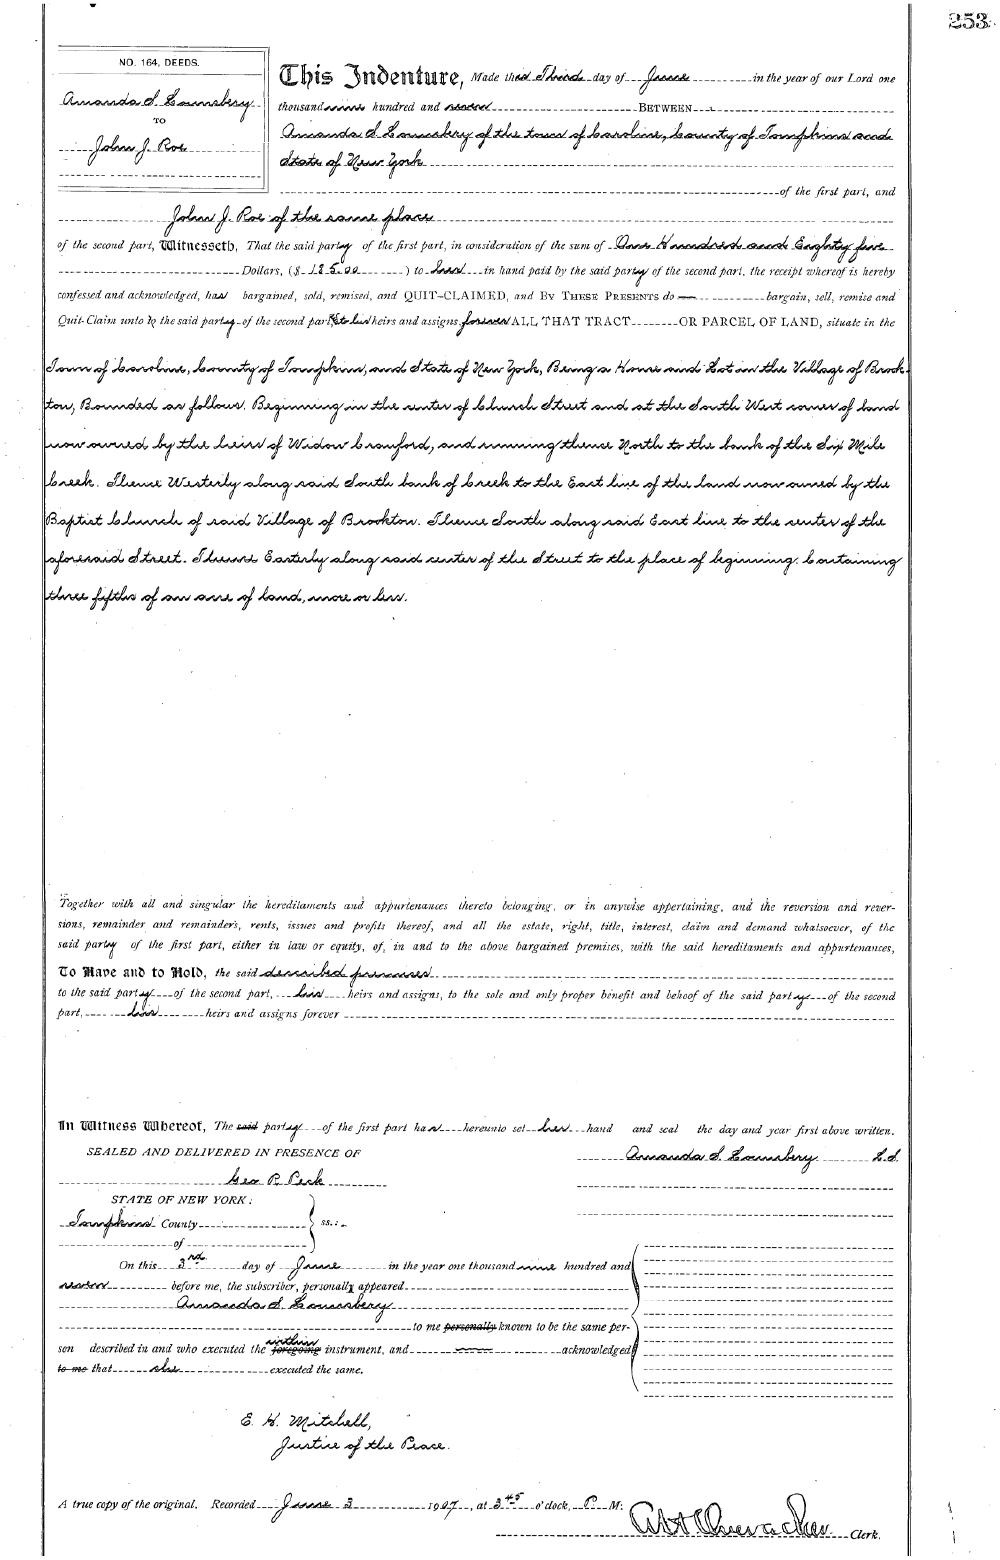 253
NO. 164, DEEDS.
Amanda S. Lounsbery
TO
John J. Roe
This Indenture, Made this Third day of June in the year of our Lord one
thousand nine hundred and seven BETWEEN
Amanda S Lounsbery of the town of Caroline, County of Tompkins and
State of New York
of the first part, and
John J. Roe of the same place
of the second part, Witnesseth, That the said party of the first part, in consideration of the sum of One Hundred and Eighty five
Dollars, ($ 185.00 ) to her in hand paid by the said party of the second part, the receipt whereof is hereby
confessed and acknowledged, has bargained, sold, remised, and QUIT-CLAIMED, and BY THESE PRESENTS do bargain, sell, remise and
Quit-Claim unto the said party of the second part & to his heirs and assigns, forever ALL THAT TRACT OR PARCEL OF LAND, situate in the
Town of Caroline, County of Tompkins, and State of New York, Being a House and Lot in the Village of Brook-
ton, Bounded as follows. Beginning in the center of Church Street and at the South West corner of land
now owned by the heirs of Widow Cranford, and running thence North to the bank of the Six Mile
Creek. Thence Westerly along said South bank of Creek to the East line of the land now owned by the
Baptist Church of said Village of Brookton. Thence South along said East line to the center of the
aforesaid Street. Thence Easterly along said center of the Street to the place of beginning. Containing
three fifths of an acre of land, more or less.
Together with all and singular the hereditaments and appurtenances thereto belonging, or in anywise appertaining, and the reversion and rever-
sions, remainder and remainders, rents, issues and profits thereof, and all the estate, right, title, interest, claim and demand whatsoever, of the
said party of the first part, either in law or equity, of, in and to the above bargained premises, with the said hereditaments and appurtenances,
To Have and to Hold, the said described premises
to the said party of the second part, his heirs and assigns, to the sole and only proper benefit and behoof of the said party of the second
part, his heirs and assigns forever
In Witness Whereof, The said party of the first part has hereunto set her hand and seal the day and year first above written.
SEALED AND DELIVERED IN PRESENCE OF
Amanda S. Lounsbery L.S
Geo P. Peck
STATE OF NEW YORK:
Tompkins County ss.:
of
On this 3rd day of June in the year one thousand nine hundred and
seven before me, the subscriber, personally appeared
Amanda S. Lounsbery
to me personally known to be the same per-
son described in and who executed the foregoing within instrument, and acknowledged
to me that she executed the same.
E. H. Mitchell,
Justice of the Peace.
A true copy of the original, Recorded June 3 1907, at 3 45 o'clock, P M.
Clerk.